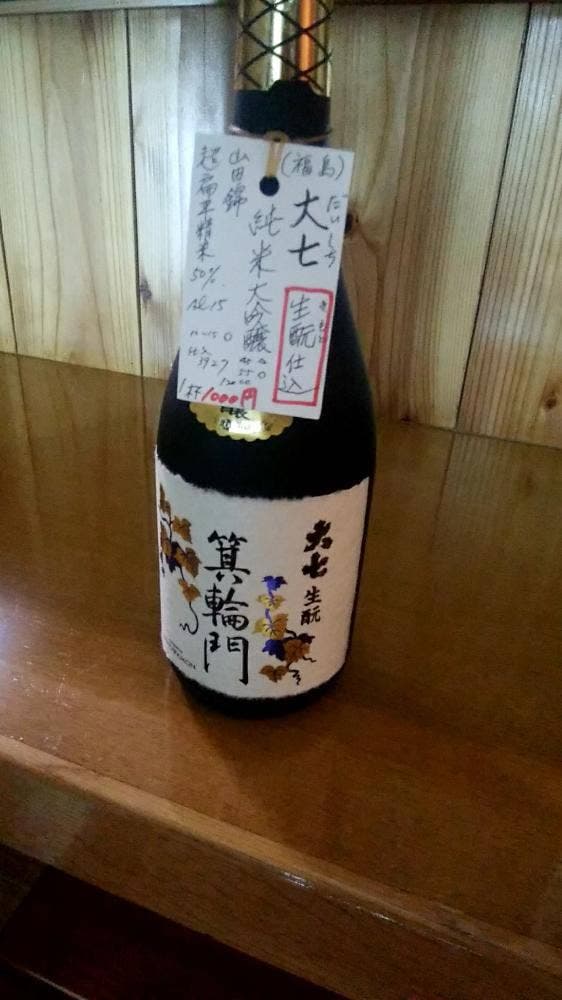 (福島)
だいしち
大七
きもと
生酛仕込
純米大吟醸
山田錦
超扁平精米
50%
Al 15
1杯1000円
大七
生酛
箕輪門